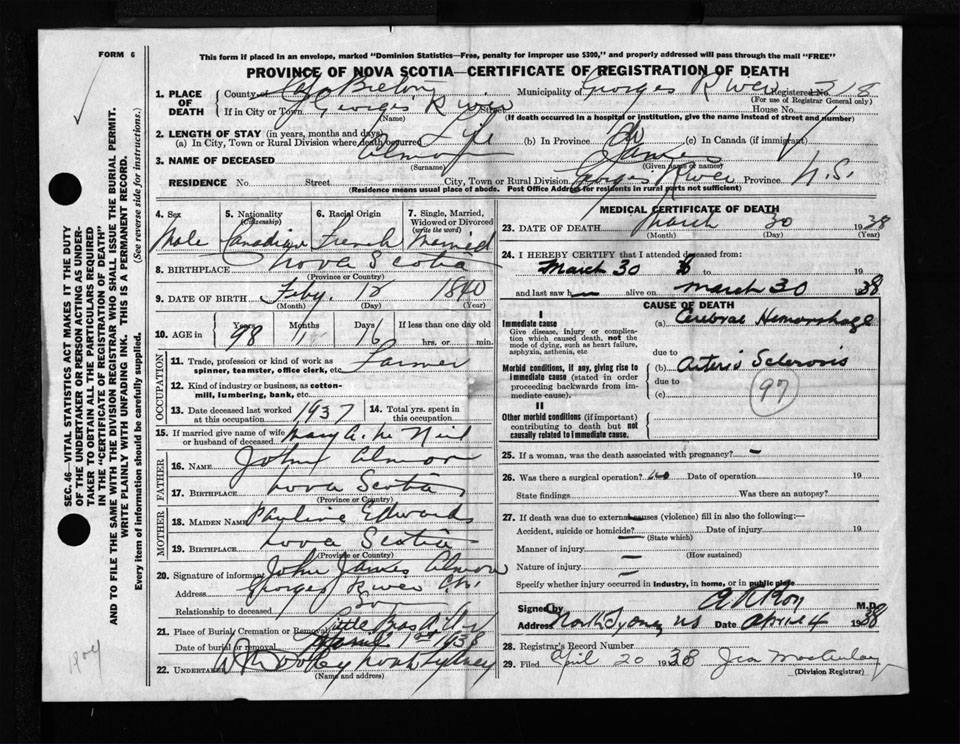 FORM 6
This form if placed in an envelope, marked "Dominion Statistics—Free, penalty for improper use $300," and properly addressed will pass through the mail "FREE"
PROVINCE OF NOVA SCOTIA—CERTIFICATE OF REGISTRATION OF DEATH
SEC. 46—VITAL STATISTICS ACT MAKES IT THE DUTY
OF THE UNDERTAKER OR PERSON ACTING AS UNDER-
TAKER TO OBTAIN ALL THE PARTICULARS REQUIRED
IN THE "CERTIFICATE OF REGISTRATION OF DEATH"
AND TO FILE THE SAME WITH THE DIVISION REGISTRAR WHO SHALL ISSUE THE BURIAL PERMIT.
WRITE PLAINLY WITH UNFADING INK. THIS IS A PERMANENT RECORD.
Every item of information should be carefully supplied. (See reverse side for instructions.)
1. PLACE OF DEATH
County of Cape Breton Municipality of Georges River Registered No. 18
(For use of Registrar General only)
If in City or Town Georges River Street House No.
(Name) (If death occurred in a hospital or institution, give the name instead of street and number)
2. LENGTH OF STAY (in years, months and days)
(a) In City, Town or Rural Division where death occurred (b) In Province (c) In Canada (if immigrant)
3. NAME OF DECEASED Almon James
(Surname) (Given name or names)
RESIDENCE No. Street City, Town or Rural Division Georges River Province N.S.
(Residence means usual place of abode. Post Office Address for residents in rural parts not sufficient)
4. Sex Male
5. Nationality (Citizenship) Canadian
6. Racial Origin French
7. Single, Married, Widowed or Divorced (write the word) Married
8. BIRTHPLACE Nova Scotia
(Province or Country)
9. DATE OF BIRTH Feby. 12 1840
(Month) (Day) (Year)
10. AGE in Years 98 Months 1 Days 16 If less than one day old
hrs. or min.
OCCUPATION
11. Trade, profession or kind of work as spinner, teamster, office clerk, etc. Farmer
12. Kind of industry or business, as cotton-mill, lumbering, bank, etc.
13. Date deceased last worked at this occupation 1937
14. Total yrs. spent in this occupation
15. If married give name of wife or husband of deceased Mary A. Mc Neil
FATHER
16. NAME John Almon
17. BIRTHPLACE Nova Scotia
(Province or Country)
MOTHER
18. MAIDEN NAME Pauline Edwards
19. BIRTHPLACE Nova Scotia
(Province or Country)
20. Signature of informant John James Almon
Address Georges River
Relationship to deceased Son
21. Place of Burial, Cremation or Removal Little Bras d'Or
Date of burial or removal 1st 1938
22. UNDERTAKER Dooley North Sydney
(Name and address)
MEDICAL CERTIFICATE OF DEATH
23. DATE OF DEATH March 30 1938
(Month) (Day) (Year)
24. I HEREBY CERTIFY that I attended deceased from:
March 30 to 19
and last saw h alive on March 30 1938
CAUSE OF DEATH
I
Immediate cause
Give disease, injury or complication which caused death, not the mode of dying, such as heart failure, asphyxia, asthenia, etc
(a) Cerebral Hemorrhage
due to
Morbid conditions, if any, giving rise to immediate cause (stated in order proceeding backwards from immediate cause).
(b) Arterio Sclerosis
due to
(c)
97
II
Other morbid conditions (if important) contributing to death but not causally related to immediate cause.
25. If a woman, was the death associated with pregnancy? —
26. Was there a surgical operation? no Date of operation 19
State findings Was there an autopsy?
27. If death was due to external causes (violence) fill in also the following:—
Accident, suicide or homicide? Date of injury 19
(State which)
Manner of injury —
(How sustained)
Nature of injury —
Specify whether injury occurred in industry, in home, or in public place
Signed by M.D.
Address North Sydney NS Date April 4 1938
28. Registrar's Record Number
29. Filed April 20 1938
(Division Registrar)